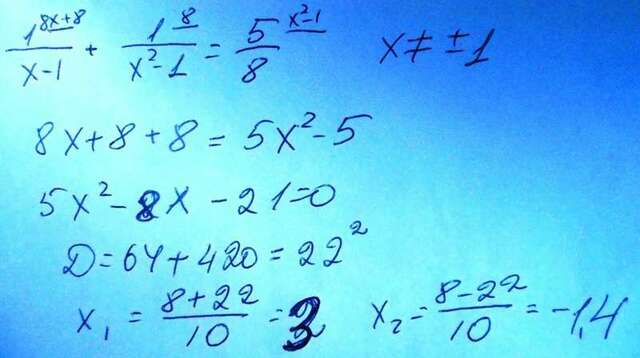 1^(8x+8)/(x-1) + 1^8/(x²-1) = 5/8^(x²-1) x ≠ ±1
8x+8+8 = 5x²-5
5x²-8x-21=0
D=64+420=22²
x₁ = (8+22)/10 = 3 x₂ = (8-22)/10 = -1,4